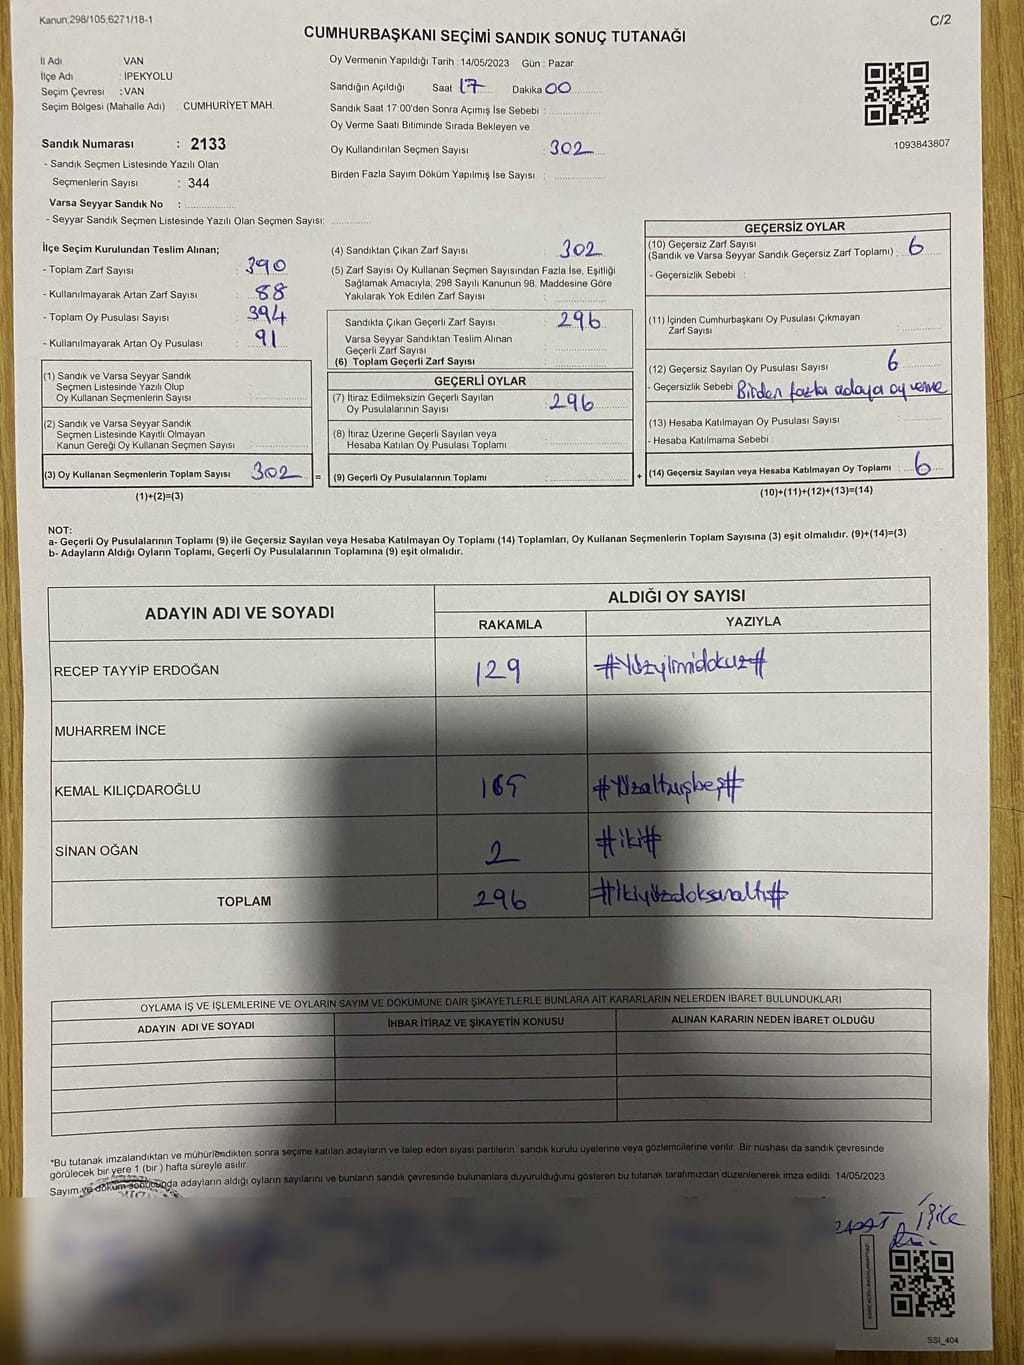 Kanun.298/105,6271/18-1
C/2
CUMHURBAŞKANI SEÇİMİ SANDIK SONUÇ TUTANAĞI
İl Adı : VAN
İlçe Adı : İPEKYOLU
Seçim Çevresi : VAN
Seçim Bölgesi (Mahalle Adı) : CUMHURİYET MAH.
Sandık Numarası : 2133
- Sandık Seçmen Listesinde Yazılı Olan
Seçmenlerin Sayısı : 344
Varsa Seyyar Sandık No :
- Seyyar Sandık Seçmen Listesinde Yazılı Olan Seçmen Sayısı:
Oy Vermenin Yapıldığı Tarih : 14/05/2023 Gün : Pazar
Sandığın Açıldığı Saat 17 Dakika 00
Sandık Saat 17:00'den Sonra Açımış İse Sebebi :
Oy Verme Saati Bitiminde Sırada Bekleyen ve
Oy Kullandırılan Seçmen Sayısı : 302
Birden Fazla Sayım Döküm Yapılmış İse Sayısı :
1093843807
İlçe Seçim Kurulundan Teslim Alınan;
- Toplam Zarf Sayısı : 390
- Kullanılmayarak Artan Zarf Sayısı : 88
- Toplam Oy Pusulası Sayısı : 394
- Kullanılmayarak Artan Oy Pusulası : 91
(1) Sandık ve Varsa Seyyar Sandık
Seçmen Listesinde Yazılı Olup
Oy Kullanan Seçmenlerin Sayısı :
(2) Sandık ve Varsa Seyyar Sandık
Seçmen Listesinde Kayıtlı Olmayan
Kanun Gereği Oy Kullanan Seçmen Sayısı :
(3) Oy Kullanan Seçmenlerin Toplam Sayısı : 302
(1)+(2)=(3)
=
(4) Sandıktan Çıkan Zarf Sayısı : 302
(5) Zarf Sayısı Oy Kullanan Seçmen Sayısından Fazla İse, Eşitliği
Sağlamak Amacıyla; 298 Sayılı Kanunun 98. Maddesine Göre
Yakılarak Yok Edilen Zarf Sayısı :
Sandıkta Çıkan Geçerli Zarf Sayısı : 296
Varsa Seyyar Sandıktan Teslim Alınan
Geçerli Zarf Sayısı :
(6) Toplam Geçerli Zarf Sayısı :
GEÇERLİ OYLAR
(7) İtiraz Edilmeksizin Geçerli Sayılan
Oy Pusulalarının Sayısı : 296
(8) İtiraz Üzerine Geçerli Sayılan veya
Hesaba Katılan Oy Pusulası Toplamı :
(9) Geçerli Oy Pusulalarının Toplamı :
+
GEÇERSİZ OYLAR
(10) Geçersiz Zarf Sayısı
(Sandık ve Varsa Seyyar Sandık Geçersiz Zarf Toplamı) : 6
- Geçersizlik Sebebi :
(11) İçinden Cumhurbaşkanı Oy Pusulası Çıkmayan
Zarf Sayısı :
(12) Geçersiz Sayılan Oy Pusulası Sayısı : 6
- Geçersizlik Sebebi : Birden fazla adaya oy verme
(13) Hesaba Katılmayan Oy Pusulası Sayısı :
- Hesaba Katılmama Sebebi :
(14) Geçersiz Sayılan veya Hesaba Katılmayan Oy Toplamı : 6
(10)+(11)+(12)+(13)=(14)
NOT:
a- Geçerli Oy Pusulalarının Toplamı (9) ile Geçersiz Sayılan veya Hesaba Katılmayan Oy Toplamı (14) Toplamları, Oy Kullanan Seçmenlerin Toplam Sayısına (3) eşit olmalıdır. (9)+(14)=(3)
b- Adayların Aldığı Oyların Toplamı, Geçerli Oy Pusulalarının Toplamına (9) eşit olmalıdır.
ADAYIN ADI VE SOYADI
ALDIĞI OY SAYISI
RAKAMLA YAZIYLA
RECEP TAYYİP ERDOĞAN 129 #Yüzyirmidokuz#
MUHARREM İNCE
KEMAL KILIÇDAROĞLU 165 #Yüzaltmışbeş#
SİNAN OĞAN 2 #iki#
TOPLAM 296 #İkiyüzdoksanaltı#
OYLAMA İŞ VE İŞLEMLERİNE VE OYLARIN SAYIM VE DÖKÜMÜNE DAİR ŞİKAYETLERLE BUNLARA AİT KARARLARIN NELERDEN İBARET BULUNDUKLARI
ADAYIN ADI VE SOYADI İHBAR İTİRAZ VE ŞİKAYETİN KONUSU ALINAN KARARIN NEDEN İBARET OLDUĞU
*Bu tutanak imzalandıktan ve mühürlendikten sonra seçime katılan adayların ve talep eden siyasi partilerin sandık kurulu üyelerine veya gözlemcilerine verilir. Bir nüshası da sandık çevresinde
görülecek bir yere 1 (bir ) hafta süreyle asılır.
Sayım ve döküm sonucunda adayların aldığı oyların sayılarını ve bunların sandık çevresinde bulunanlara duyurulduğunu gösteren bu tutanak tarafımızdan düzenlenerek imza edildi. 14/05/2023
SSI_404